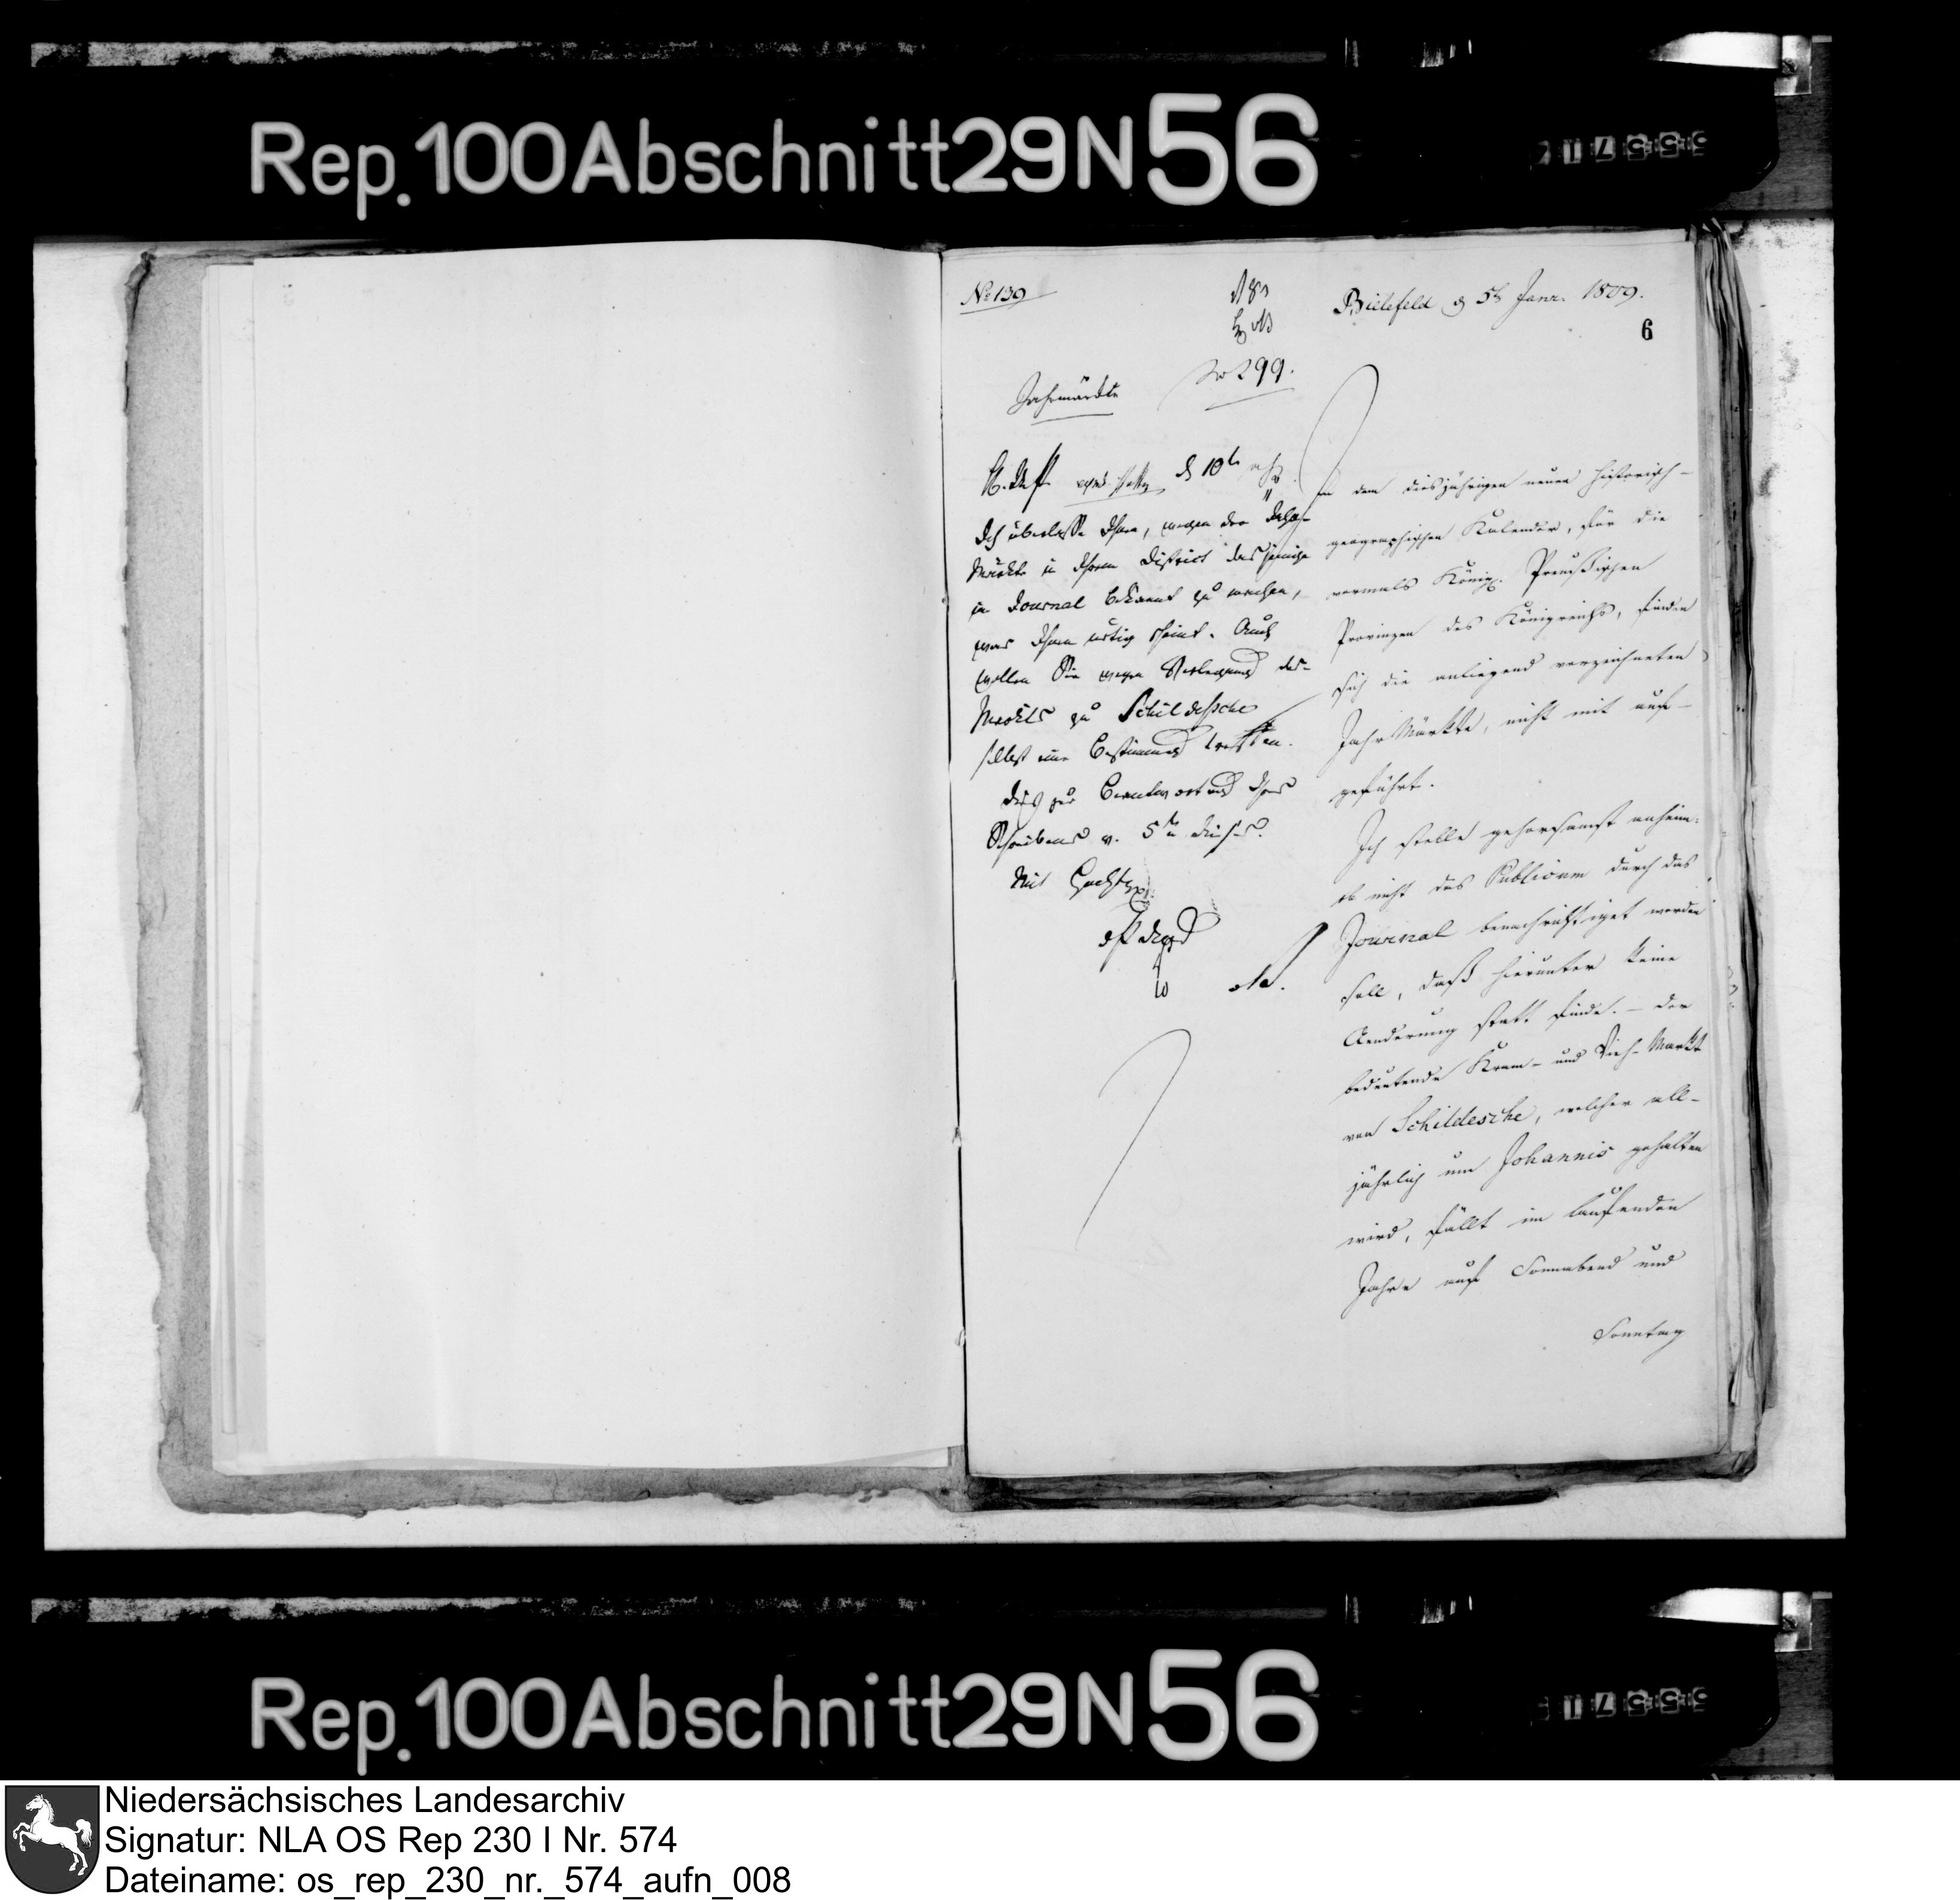 Rep. 100 Abschnitt 29 N 56
No 139
Bielefeld d 5t Janr. 1809.
6
No 299.
Jahrmärckte
d 10t
Ich überlasse Ihnen, wegen der Jahr-
Märkte in Ihrem District dasjenige
im Journal bekannt zu machen,
was Ihnen nötig scheint. Auch
wollen Sie wegen Verlegung des
Markts zu Schildesche
selbst eine Bestimmung treffen.
Dies zur Beantwortung Ihres
Schreibens v. 5ten dieses.
Mit
In dem diesjährigen neuen historisch-
geographischen Kalender, für die
vormals Königl. Preußischen
Provinzen des Königreichs, finden
sich die anliegend verzeichneten
Jahr Märkte, nicht mit auf-
geführt.
Ich stelle gehorsamst anheim:
ob nicht das Publicum durch das
Journal benachrichtiget werden
soll, daß hierunter keine
Aenderung statt finde. – Der
bedeutende Kram- und Vieh-Markt
von Schildesche, welcher all-
jährlich um Johannis gehalten
wird, fällt im laufenden
Jahre auf Sonnabend und
Sonntag
Rep. 100 Abschnitt 29 N 56
Niedersächsisches Landesarchiv
Signatur: NLA OS Rep 230 I Nr. 574
Dateiname: os_rep_230_nr._574_aufn_008